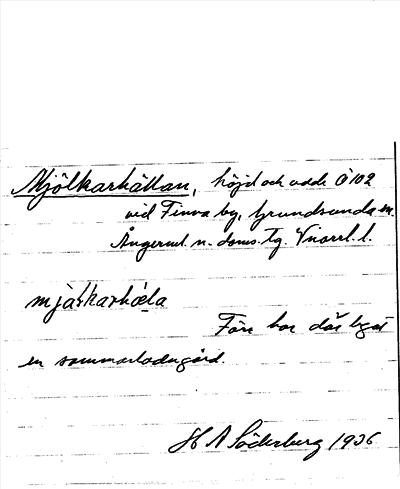 Mjölkarhällan, höjd och udde Ö 102
vid Finna by, Grundsunda sn.
Ångerml. n. doms. tg. Vnorrl. l.
mjàɫkarhæla
Förr har där legat
en sommarladugård.
H A Söderberg 1936